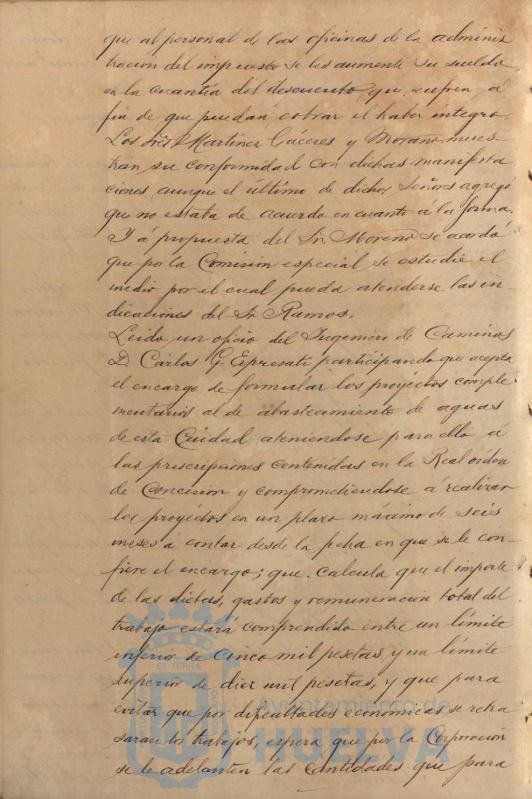 que al personal de las oficinas de la adminis
tracion del impuesto se les aumente su sueldo
en la cuantia del descuento que sufren á
fin de que puedan cobrar el haber integro.
Los Sres Martinez Cáceres y Moreno mues
tran su conformidad con dichas manifesta
ciones, aunque el último de dichos Señores agregó
que no estaba de acuerdo en cuanto á la forma.
Y á propuesta del Sr. Moreno se acordó
que por la Comision especial se estudie el
medio por el cual pueda atenderse las in-
dicaciones del Sr Ramos.
Leido un oficio del Ingeniero de Caminos
D. Carlos G. participando que acepta
el encargo de formular los proyectos comple
mentarios al de abastecimiento de aguas
de esta Ciudad ateniendose para ello á
las prescripciones contenidas en la Real orden
de Concesion y comprometiendose á realizar
los proyectos en un plazo máximo de seis
meses á contar desde la fecha en que se le con-
fiere el encargo; que calcula que el importe
de las dietas, gastos y remuneracion total del
trabajo estará comprendido entre un límite
inferior de Cinco mil pesetas y un límite
superior de diez mil pesetas, y que para
evitar que por dificultades economicas se retra
saran los trabajos, espera que por la Corporacion
se le adelanten las cantidades que para
Ayuntamiento de
HUELVA